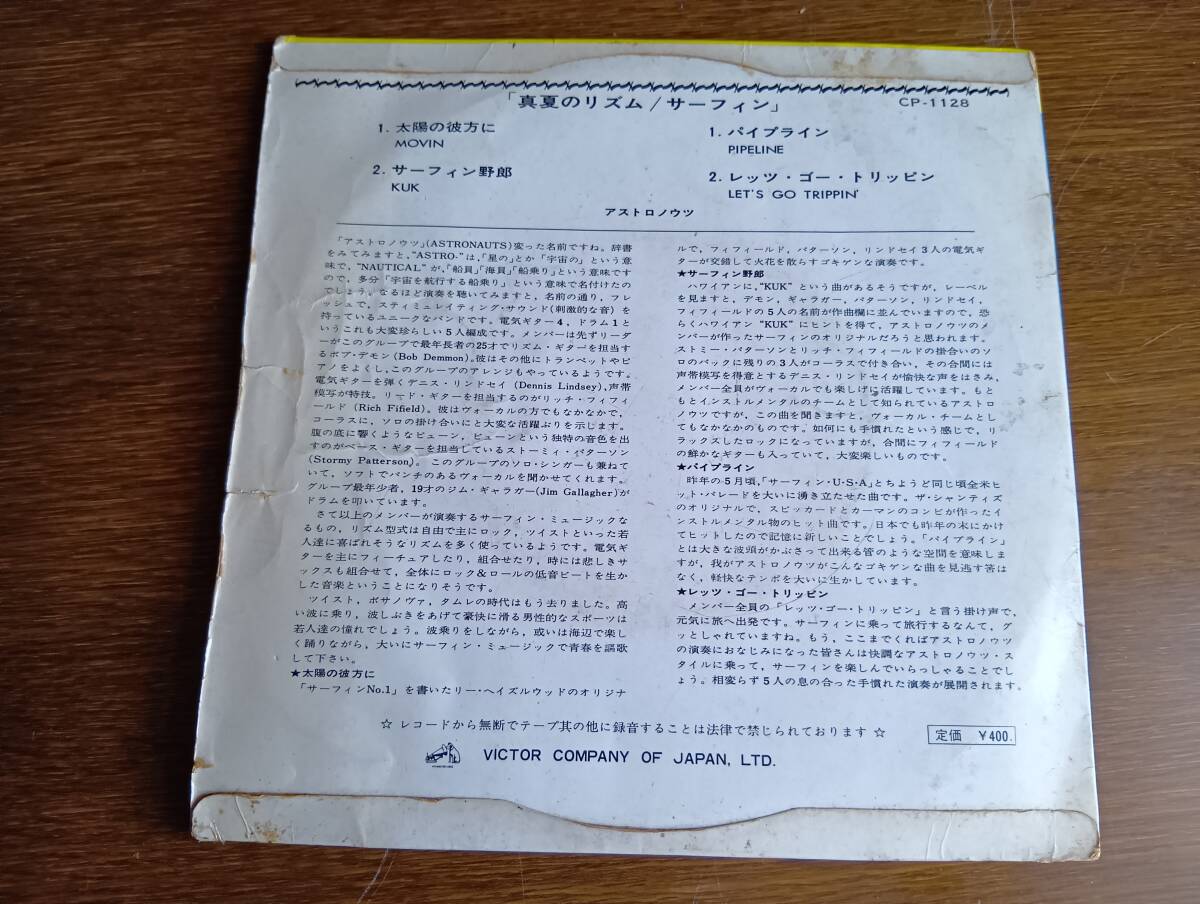 「真夏のリズム/サーフィン」
CP-1128
1. 太陽の彼方に
MOVIN
2. サーフィン野郎
KUK
1. パイプライン
PIPELINE
2. レッツ・ゴー・トリッピン
LET'S GO TRIPPIN'
アストロノウツ
「アストロノウツ」(ASTRONAUTS)変った名前ですね。辞書
をみてみますと,"ASTRO-"は,「星の」とか「宇宙の」という意
味で,"NAUTICAL"が,「船員」「海員」「船乗り」という意味です
ので,多分「宇宙を航行する船乗り」という意味で名付けたの
でしょう。なるほど演奏を聴いてみますと,名前の通り,フレ
ッシュで,スティミュレイティング・サウンド(刺激的な音)を
持っているユニークなバンドです。電気ギター4,ドラム1と
いうこれも大変珍らしい5人編成です。メンバーは先ずリーダ
ーがこのグループで最年長者の25才でリズム・ギターを担当す
るボブ・デモン(Bob Demmon)。彼はその他にトランペットやピ
アノをよくし,このグループのアレンジもやっているようです。
電気ギターを弾くデニス・リンドセイ(Dennis Lindsey),声帯
模写が特技。リード・ギターを担当するのがリッチ・フィフィ
ールド(Rich Fifield)。彼はヴォーカルの方でもなかなかで,
コーラスに,ソロの掛け合いにと大変な活躍ぶりを示します。
腹の底に響くようなビューン,ビューンという独特の音色を出
すのがベース・ギターを担当しているストーミィ・パターソン
(Stormy Patterson)。このグループのソロ・シンガーも兼ねて
いて,ソフトでパンチのあるヴォーカルを聞かせてくれます。
グループ最年少者,19才のジム・ギャラガー(Jim Gallagher)が
ドラムを叩いています。
さて以上のメンバーが演奏するサーフィン・ミュージックな
るもの,リズム型式は自由で主にロック,ツイストといった若
人達に喜ばれそうなリズムを多く使っているようです。電気ギ
ターを主にフィーチュアしたり,組合せたり,時には悲しきサ
ックスも組合せて,全体にロック&ロールの低音ビートを生か
した音楽ということになりそうです。
ツイスト,ボサノヴァ,タムレの時代はもう去りました。高
い波に乗り,波しぶきをあげて豪快に滑る男性的なスポーツは
若人達の憧れでしょう。波乗りをしながら,或いは海辺で楽し
く踊りながら,大いにサーフィン・ミュージックで青春を謳歌
して下さい。
★太陽の彼方に
「サーフィンNo.1」を書いたリー・ヘイズルウッドのオリジナ
ルで,フィフィールド,パターソン,リンドセイ3人の電気ギ
ターが交錯して火花を散らすゴキゲンな演奏です。
★サーフィン野郎
ハワイアンに,"KUK"という曲があるそうですが,レーベル
を見ますと,デモン,ギャラガー,パターソン,リンドセイ,
フィフィールドの5人の名前が作曲欄に並んでいますので,恐
らくハワイアン"KUK"にヒントを得て,アストロノウツのメ
ンバーが作ったサーフィンのオリジナルだろうと思われます。
ストミー・パターソンとリッチ・フィフィールドの掛合いのソ
ロのバックに残りの3人がコーラスで付き合い,その合間には
声帯模写を得意とするデニス・リンドセイが愉快な声をはさみ,
メンバー全員がヴォーカルでも楽しげに活躍しています。もと
もとインストルメンタルのチームとして知られているアストロ
ノウツですが,この曲を聞きますと,ヴォーカル・チームとし
てもなかなかのものです。如何にも手慣れたという感じで,リ
ラックスしたロックになっていますが,合間にフィフィールド
の鮮かなギターも入っていて,大変楽しいものです。
★パイプライン
昨年の5月頃,「サーフィン・U・S・A」とちようど同じ頃全米ヒ
ット・パレードを大いに湧き立たせた曲です。ザ・シャンティズ
のオリジナルで,スピッカードとカーマンのコンビが作ったイ
ンストルメンタル物のヒット曲です。日本でも昨年の末にかけ
てヒットしたので記憶に新しいことでしょう。「パイプライン」
とは大きな波頭がかぶさって出来る管のような空間を意味しま
すが,我がアストロノウツがこんなゴキゲンな曲を見逃す筈は
なく,軽快なテンポを大いに生かしています。
★レッツ・ゴー・トリッピン
メンバー全員の「レッツ・ゴー・トリッピン」と言う掛け声で,
元気に旅へ出発です。サーフィンに乗って旅行するなんて,グ
ッとしゃれていますね。もう,ここまでくればアストロノウツ
の演奏におなじみになった皆さんは快調なアストロノウツ・ス
タイルに乗って,サーフィンを楽しんでいらっしゃることでし
ょう。相変らず5人の息の合った手慣れた演奏が展開されます。
☆ レコードから無断でテープ其の他に録音することは法律で禁じられております ☆
定価 ¥400.
VICTOR COMPANY OF JAPAN, LTD.